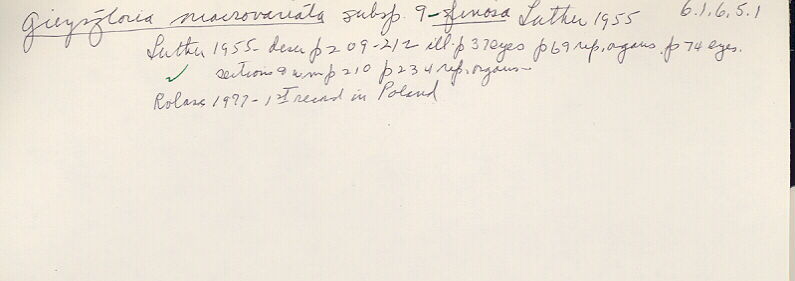 Gieysztoria macrovariata subsp. 9-spinosa Luther 1955 6.1.6.5.1
Luther 1955- descr p 209-212 ill. p 37 eyes p 69 rep. organs. p 74 eyes.
✓ sections & wm p 210 p 234 rep. organs-
1977 - 1st record in Poland